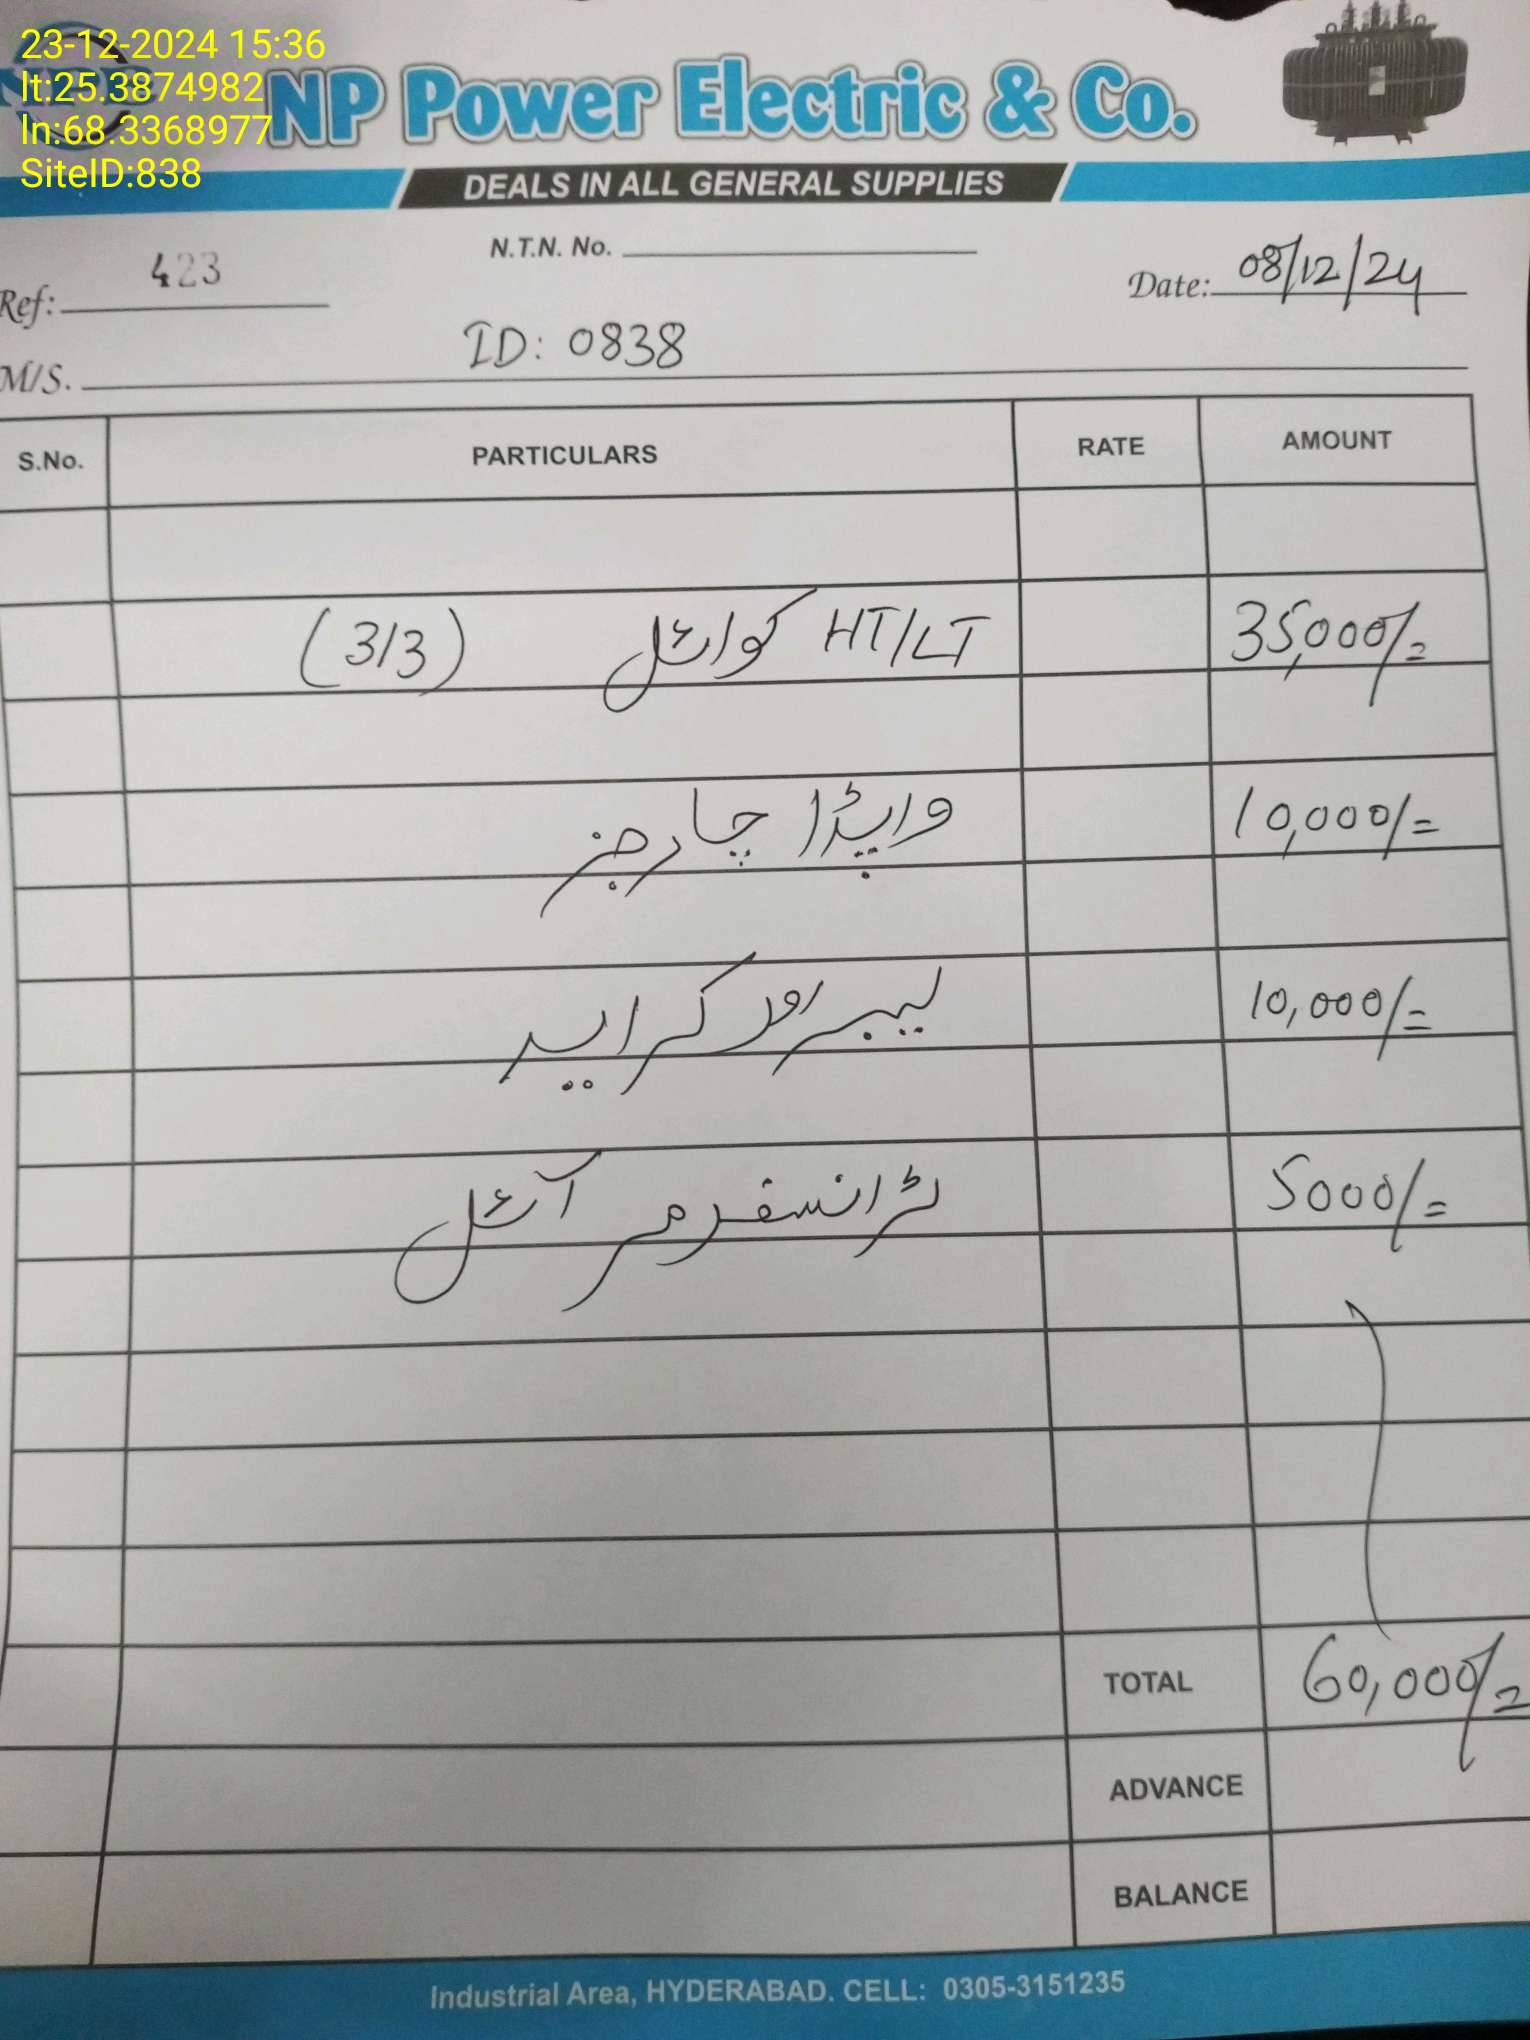 23-12-2024 15:36
lt:25.3874982
ln:68.3368977
SiteID:838
NP Power Electric & Co.
DEALS IN ALL GENERAL SUPPLIES
N.T.N. No.
Ref: 423
Date: 08/12/24
M/S. ID: 0838
S.No. PARTICULARS RATE AMOUNT
HT/LT کوائل (3/3) 35,000/=
واپڈا چارجز 10,000/=
لیبر اور کرایہ 10,000/=
ٹرانسفرمر آئل 5000/=
TOTAL 60,000/=
ADVANCE
BALANCE
Industrial Area, HYDERABAD. CELL: 0305-3151235